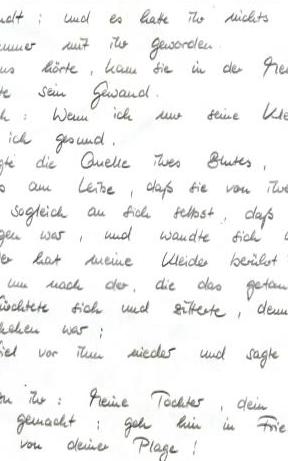 ndt ; und es hatte ihr nichts
mmer mit ihr geworden.
us hörte, kam sie in der Men
te sein Gewand.
h : Wenn ich nur seine Klei
ich gesund.
gte die Quelle ihres Blutes,
s am Leibe, daß sie von ihre
sogleich an sich selbst, daß
gen war, und wandte sich u
er hat meine Kleider berührt
um nach der, die das getan
ürchtete sich und zitterte, denn
hehen war ;
iel vor ihm nieder und sagte
zu ihr : Meine Tochter, dein
gemacht ; geh hin in Frie
von deiner Plage !